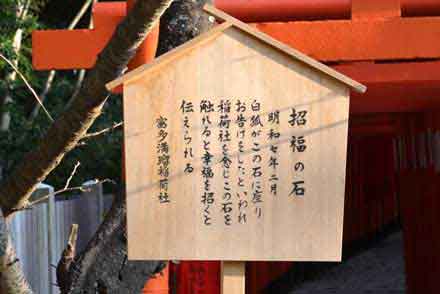 招福の石
明和七年二月
白狐がこの石に座り
お告げをしたといわれ
稲荷社を念じこの石を
触れると幸福を招くと
伝えられる
富多満瑠稲荷社